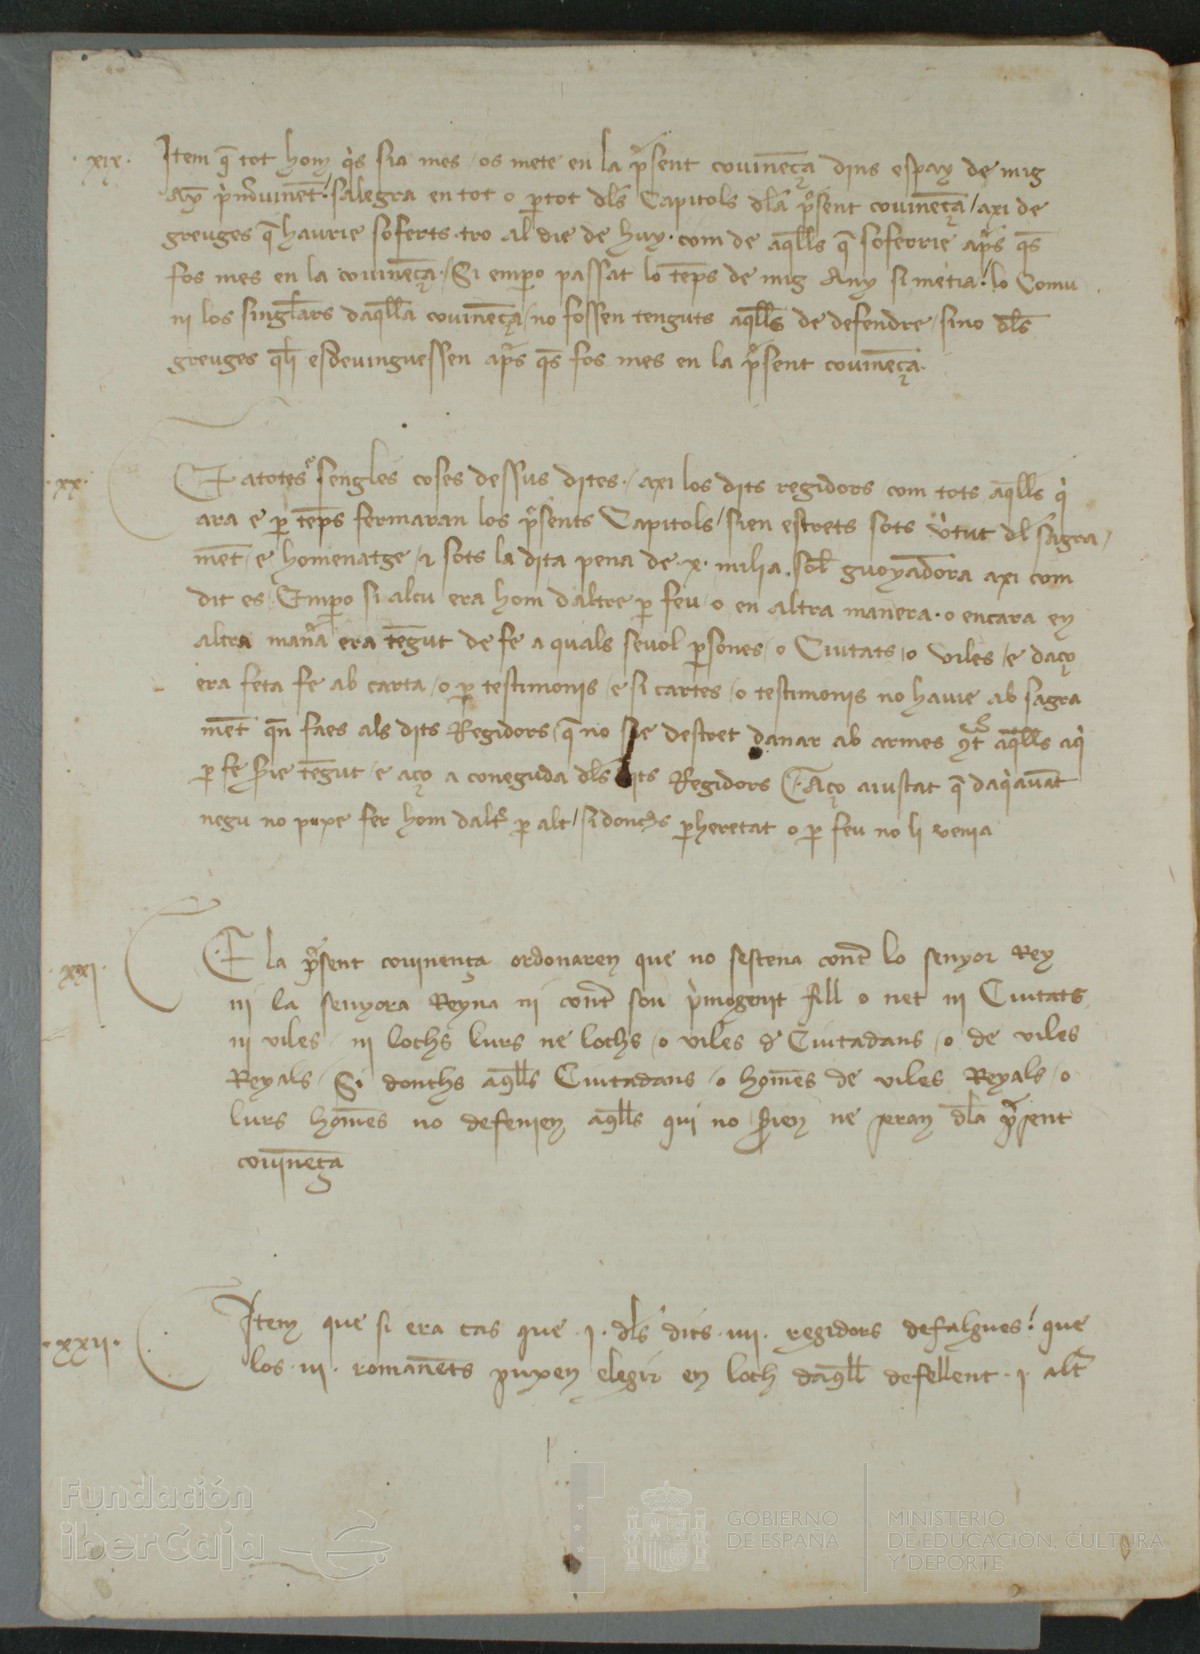 ·xix· Item q̄ tot hom q̇s sia mes / os mete en la p̃sent couinēça dins espay de mig
Añy p̃m̃uinēt·/ salegra en tot o ꝑtot dl̃s Capitols dl̃a p̃sent couinēçā / axi de
greuges q̄ haurie soferts tro al die de huy · com de aq̄lls q̄ soferrie ap̃s q̄s
fos mes en la couinēça·/ Si emꝑo passat lo tēps de mig Any si metia·/ lo Comu
ni los singl̃ars daq̄lla couinēça / no fossen tenguts aq̄lls de defendre / sino dl̃s
greuges qł̃ esdeuinguessen ap̃s q̄s fos mes en la p̃sent couinēça·
·xx· E atotes e sengles coses dessus dites·/ axi los dits regidors com tots aq̄lls q̇
ara e ꝑ tēps fermaran los p̃sents Capitols / sien estrets sots ṽtut dl̃ sagra /
mēt / e homenatge / ⁊ sots la dita pena de ·x· milia · sol̃ guoyadora axi com
dit es / Emꝑo si alcu era hom daltre ꝑ feu / o en altra manera · o encara en
altra mañ̃a era tēgut de fe a quals seuol ꝑsones / o Ciutats / o viles / e daço
era feta fe ab carta / o ꝑ testimonis / e si cartes / o testimonis no hauie ab sagra
mēt qñ faes als dits Regidors / q̄ no sie destret danar ab armes ꝯt̃ aq̄lls aq̇
ꝑ fe s̃ie tēgut / e aço a coneguda dl̃s dits Regidors E Aço aiustat q̄ daq̇auāt
negu no puxe fer hom dalt̃ ꝑ alt̃ / si donch̃s ꝑheretat o ꝑ feu no li venia
·xxi· E la p̃sent couinença ordonaren que no sestena cont̃ lo senyor Rey
ni la senyora Reyna ni cont̃ son p̃mogenit fill o net ni Ciutats
ni viles ni lochs lurs ne lochs / o viles d̃ Ciutadans / o de viles
Reyals / Si donchs aq̄lls Ciutadans / o homēs de viles Reyals / o
lurs homēs no defenien aq̄lls qui no s̃ien ne seran dl̃a p̃sent
couinēça
·xxii· Item que si era cas que ·j· dl̃s dits ·iiij· regidors defalgues·/ que
los ·iij· romanēts puxen elegir en loch daq̄ll defellent ·j· alt̃
Fundación
iberCaja
GOBIERNO
DE ESPAÑA
MINISTERIO
DE EDUCACIÓN, CULTURA
Y DEPORTE